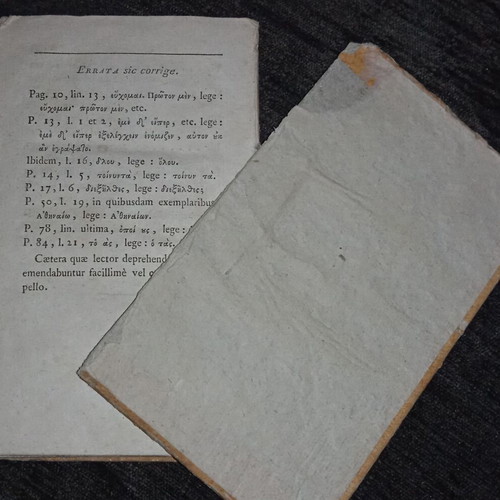 ERRATA sic corrige.
Pag. 10, lin. 13, εὔχομαι. Πρῶτον μὲν, lege :
εὔχομαι πρῶτον μὲν, etc.
P. 13, l. 1 et 2, ἐμὲ δι' εἴπερ, etc. lege :
ἐμὲ δι' εἴπερ ἐξελέγχειν ἐνόμιζεν, αὐτὸν
ἂν ἐγράψατο.
Ibidem, l. 16, ὅλου, lege : ὅλου.
P. 14, l. 5, τοίνυντὰ, lege : τοίνυν τὰ.
P. 17, l. 6, διεξῆλθες, lege : διεξῆλθες;
P. 50, l. 19, in quibusdam exemplaribus
Ἀθηναίω, lege : Ἀθηναίων.
P. 78, lin. ultima, lege :
P. 84, l. 21, τὸ ἃς, lege : ὁ τὰς.
Cætera quæ lector
emendabuntur facillimè vel
pello.